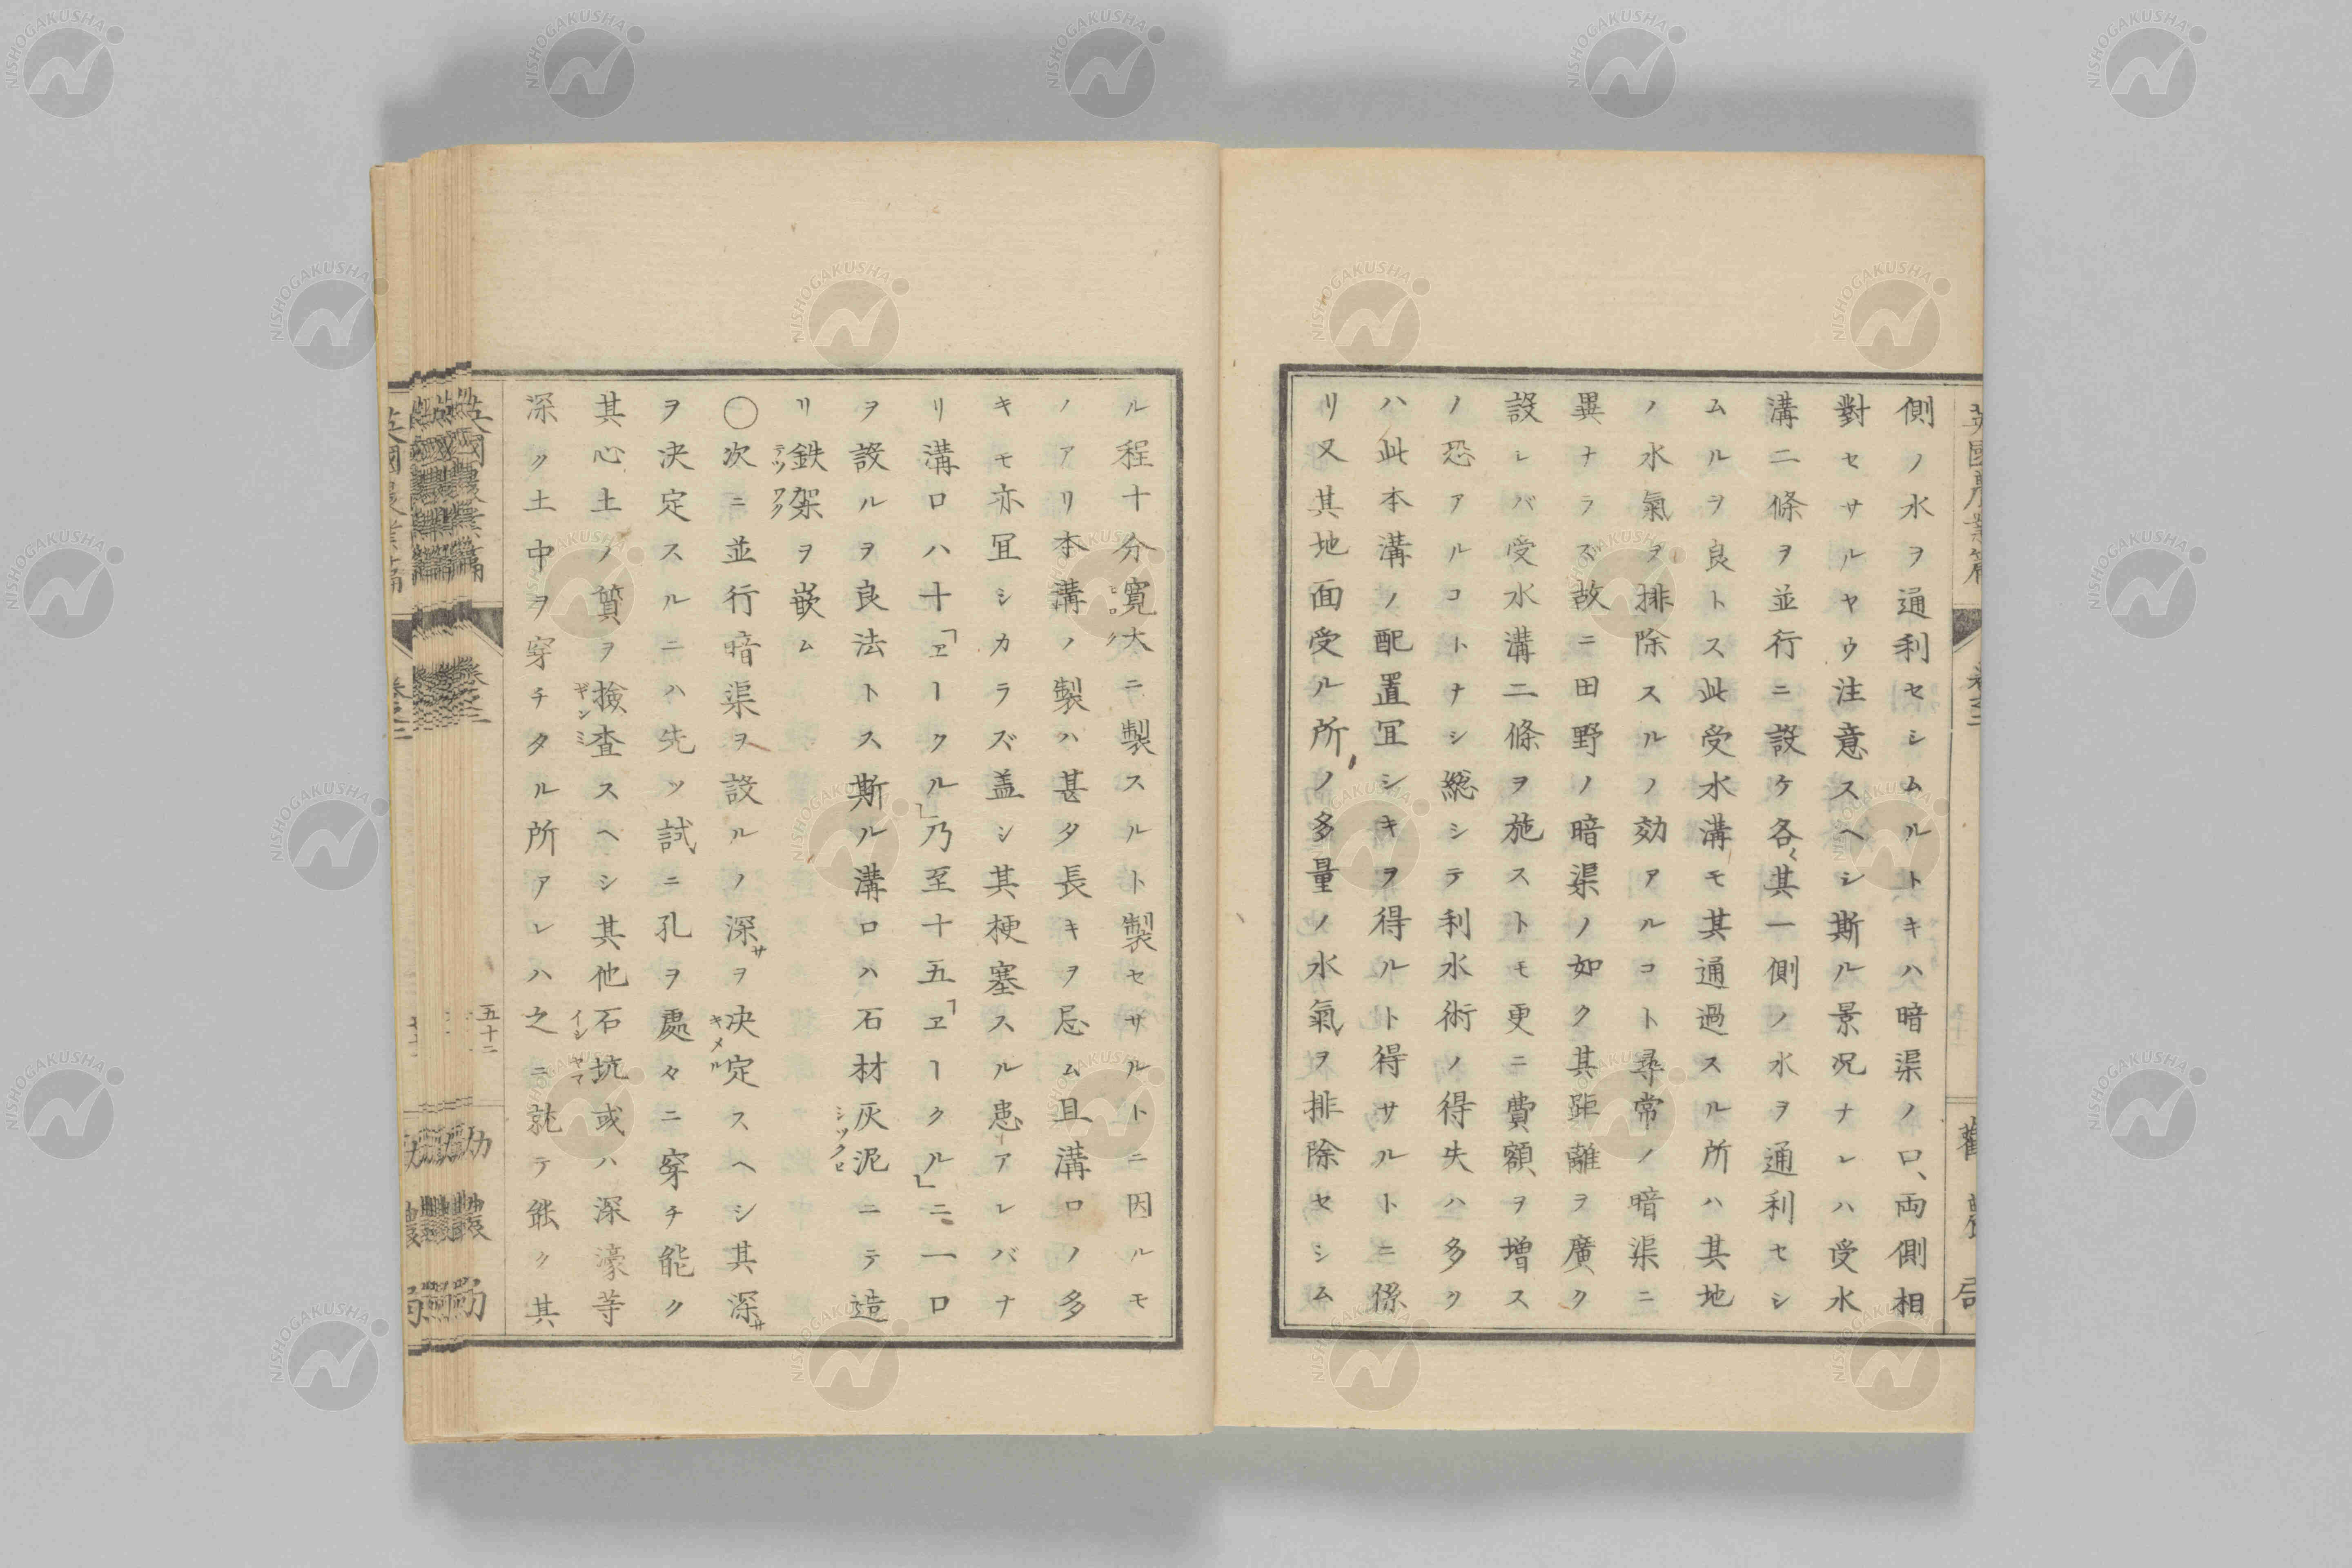 側ノ水ヲ通利セシムルトキハ暗渠ノ口、両側相
對セサルヤウ注意スヘシ斯ル景况ナレハ受水
溝二條ヲ並行ニ設ケ各〻其一側ノ水ヲ通利セシ
ムルヲ良トス此受水溝モ其通過スル所ハ其地
ノ水氣ヲ排除スルノ効アルコト尋常ノ暗渠ニ
異ナラズ故ニ田野ノ暗渠ノ如ク其距離ヲ廣ク
設レバ受水溝二條ヲ施ストモ更ニ費額ヲ增ス
ノ恐アルコトナシ総シテ利水術ノ得失ハ多ク
ハ此本溝ノ配置冝シキヲ得ルト得サルトニ係
リ又其地面受ル所ノ多量ノ水氣ヲ排除セシム
ル程十分寛大ニ製スルト製セサルトニ因ルモ
ヒロク
ノアリ本溝ノ製ハ甚タ長キヲ忌ム且溝口ノ多
キモ亦冝シカラズ盖シ其梗塞スル患アレバナ
リ溝口ハ十「ヱークル」乃至十五「ヱークル」ニ一口
ヲ設ルヲ良法トス斯ル溝口ハ石材灰泥ニテ造
シックヒ
リ鉄架ヲ嵌ム
テツワク
〇次ニ並行暗渠ヲ設ルノ深サヲ决定スヘシ其深サ
キメル
ヲ决定スルニハ先ツ試ニ孔ヲ處々ニ穿チ能ク
其心土ノ質ヲ撿査スヘシ其他石坑或ハ深濠等
ギンミ
イシヤマ
深ク土中ヲ穿チタル所アレハ之ニ就テ能ク其
英國農業篇
卷之二
五十二
勸農局
NISHOGAKUSHA